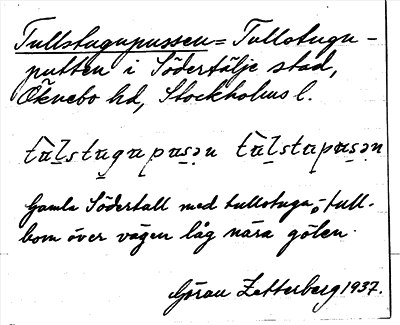 Tullstugupussen = Tullstugu-
putten i Södertälje stad,
Öknebo hd, Stockholms l.
tùl̲stu̲gupu̲s̲ən tùl̲stupu̲s̲ən
Gamla Södertull med tullstuga o. tull-
bom över vägen låg nära gölen.
Göran Zetterberg 1937.